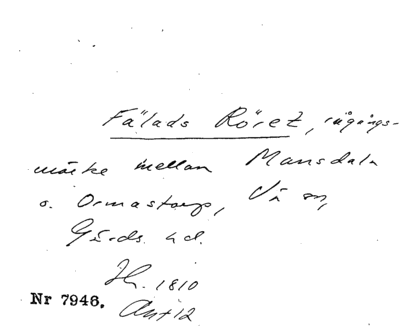 Fälads Röret, rågångs-
märke mellan Mansdala
o. Ormastorp, Vä sn,
Gärds hd.
Hr. 1810
Nr 7946.
Ant 12